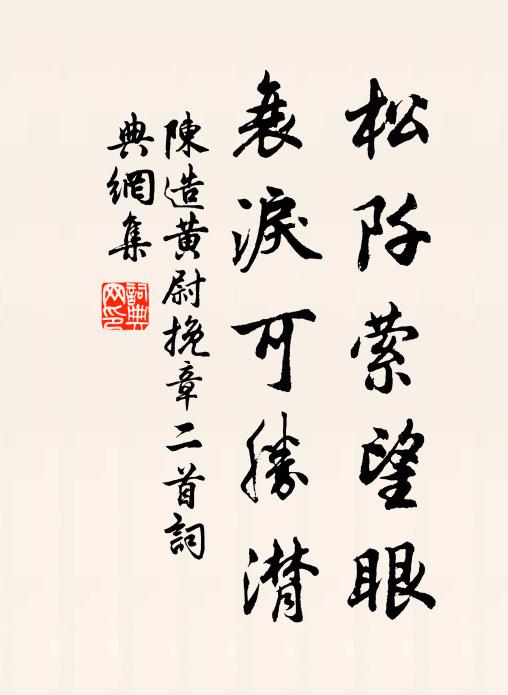 松阡萦望眼
衰淚可勝潸
陳造黄尉挽章二首詞
典網集
詞典
网印